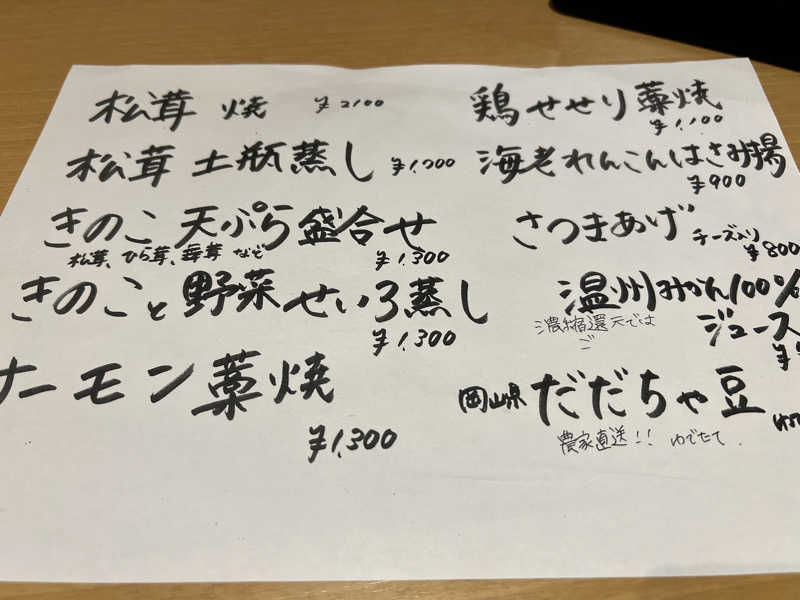 松茸 焼 ¥2100
松茸 土瓶蒸し ¥1,200
きのこ 天ぷら盛合せ
松茸、ひら茸、舞茸 など
¥1,300
きのこと野菜せいろ蒸し
¥1,300
ーモン藁焼
¥1,300
鶏せせり藁焼
¥1,100
海老れんこんはさみ揚
¥900
さつまあげ チーズ入り
¥800
温州みかん100%
濃縮還元では
ご
ジュース
¥
岡山県 だだちゃ豆
農家直送!! ゆでたて